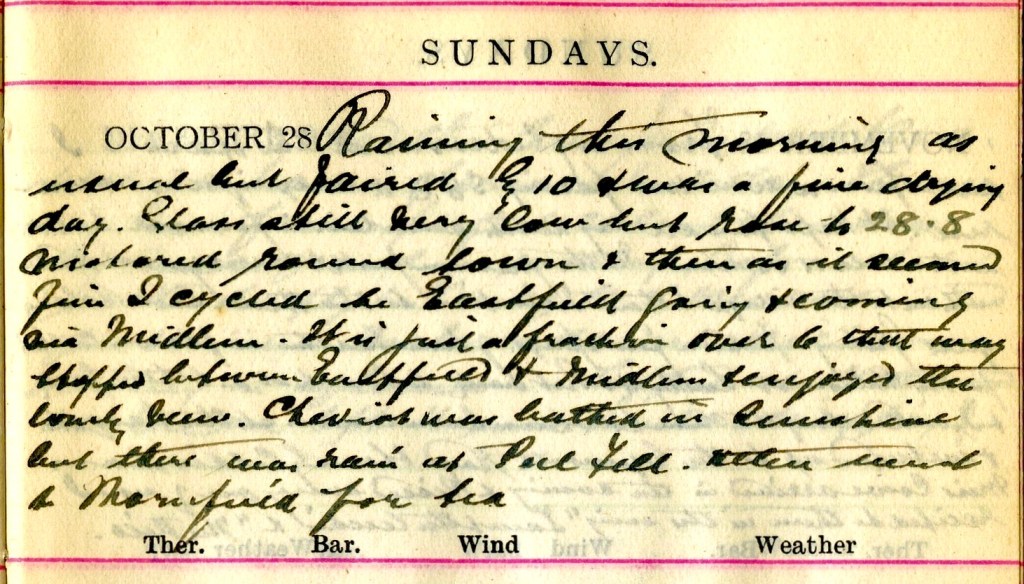 SUNDAYS.
OCTOBER 28 Raining this morning as
usual but faired by 10 & was a fine drying
day. Glass still very low but rose to 28.8
Motored round town & then as it seemed
fine I cycled to Eastfield going & coming
via Midlem. It is just a fraction over 6 that way
Stopped between Eastfield & Midlem & enjoyed the
lovely view. Cheviot was bathed in sunshine
but there was rain at Peel Fell. Helen went
to Thornfield for tea
Ther. Bar. Wind Weather